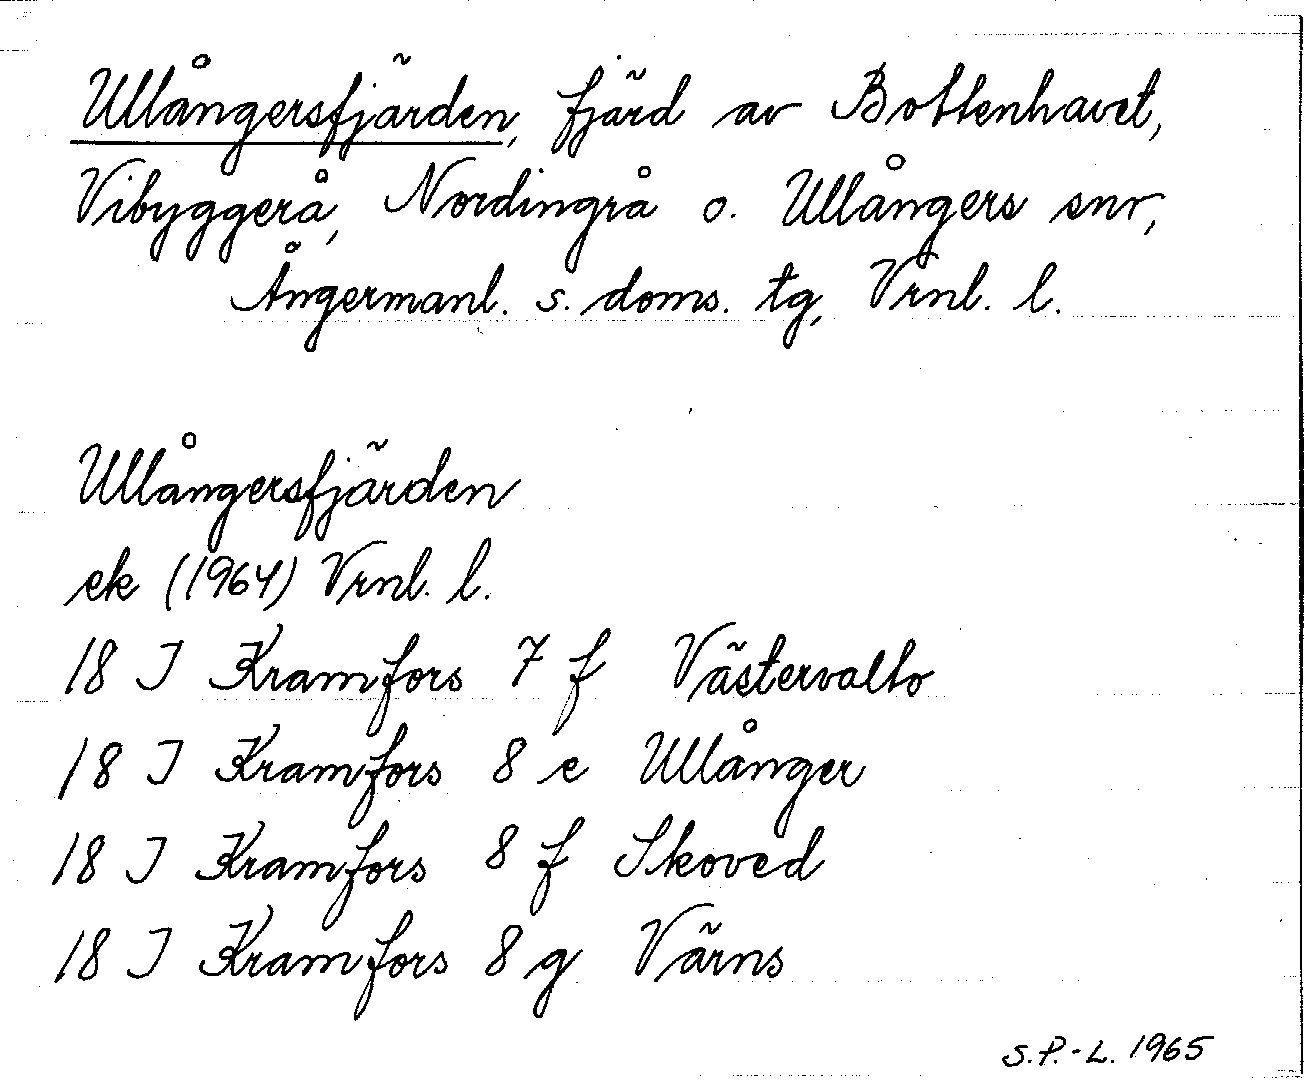 Ullångersfjärden, fjärd av Bottenhavet,
Vibyggerå, Nordingrå o. Ullångers snr,
Ångermanl. s. doms. tg, Vrnl. l.
Ullångersfjärden
ek (1964) Vrnl. l.
18 I Kramfors 7 f Västervalto
18 I Kramfors 8 e Ullånger
18 I Kramfors 8 f Skoved
18 I Kramfors 8 g Värns
S.P.-L. 1965